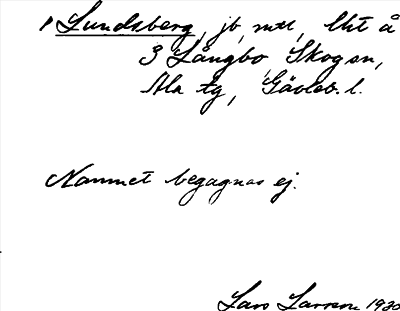 1 Lundsberg, jb, mtl, lht å
3 Långbo, Skogsn,
Ala tg, Gävleb. l.
Namnet begagnas ej.
Lars Larson 1930